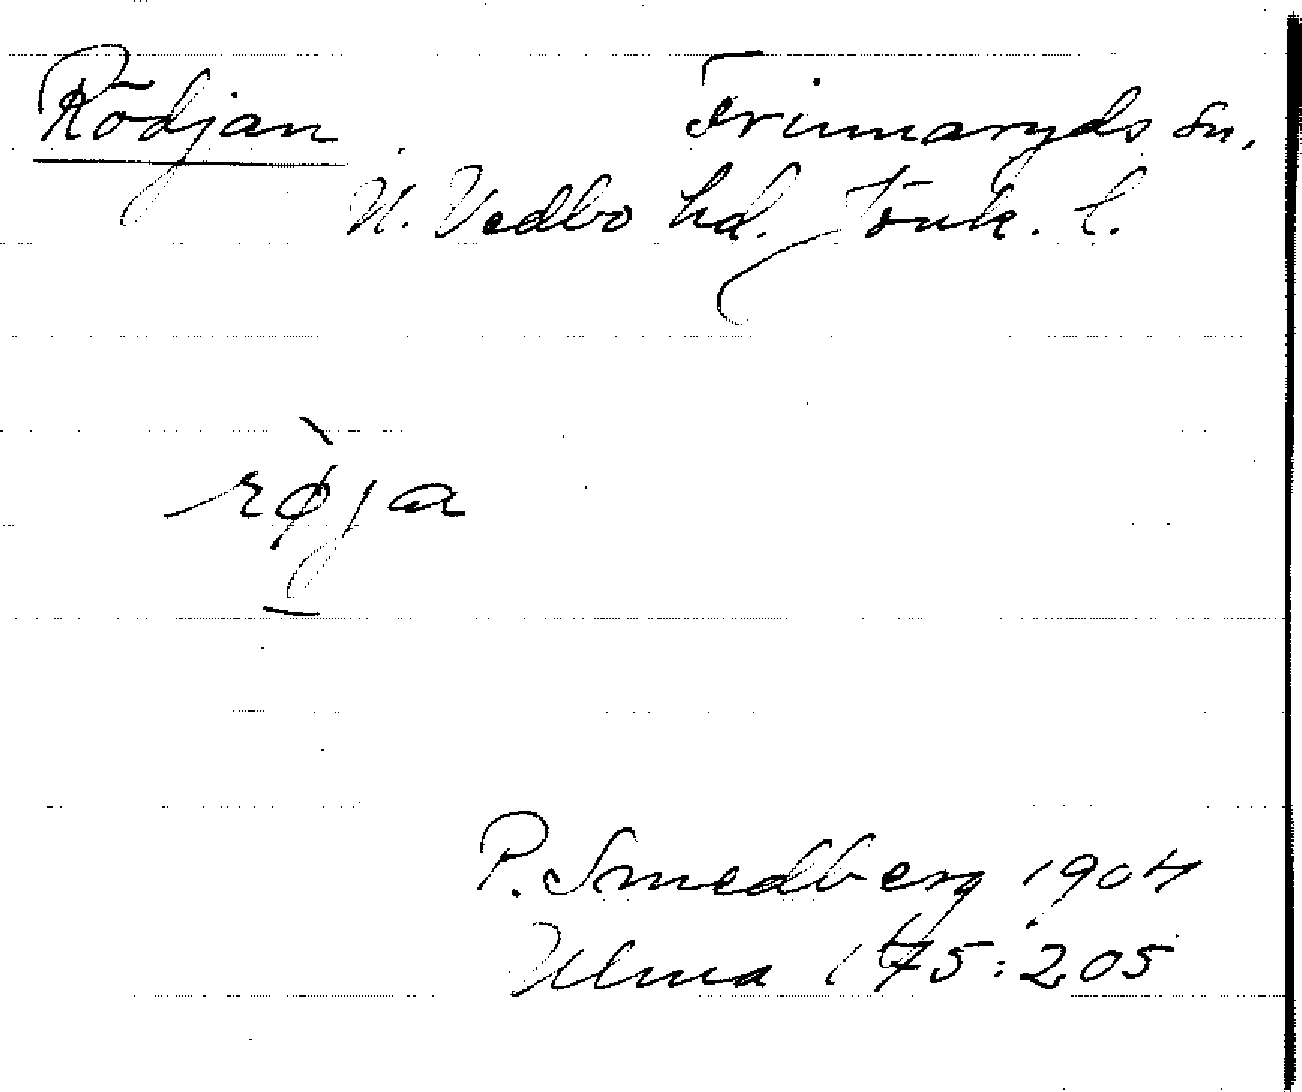 Rödjan Frinnaryds sn.
N. Vedbo hd. Jönk. l.
rø̀ja
P. Smedberg 1904
Ulma 175:205